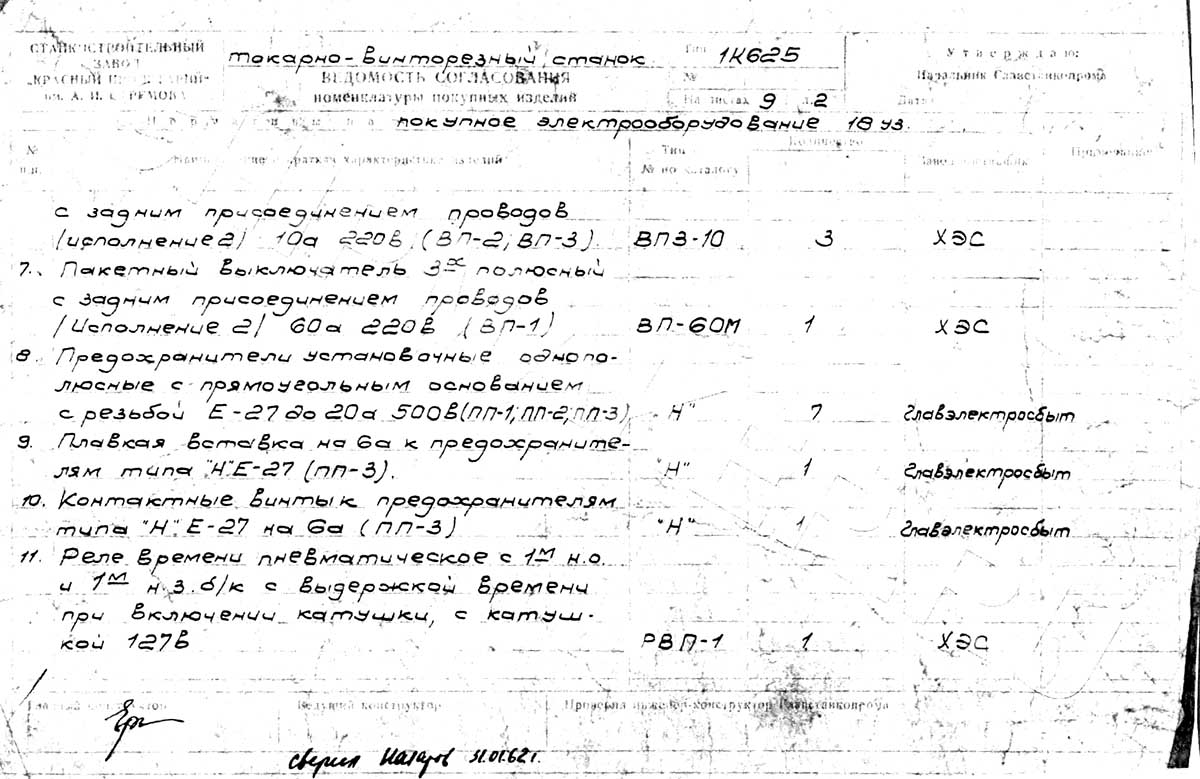 СТАНКОСТРОИТЕЛЬНЫЙ ЗАВОД
Токарно-винторезный станок Тип 1К625
Утверждаю:
ВЕДОМОСТЬ СОГЛАСОВАНИЯ №
Начальник Главстанкопрома
номенклатуры покупных изделий На листах 9 л.2 Дата
покупное электрооборудование 18 уз.
№ п.п. краткая характеристика изделий Тип № по каталогу Количество Завод Примечание
с задним присоединением проводов
/исполнение 2/ 10а 220в (ВП-2; ВП-3). ВП3-10 3 ХЭС
7. Пакетный выключатель 3х полюсный
с задним присоединением проводов
/Исполнение 2/ 60а 220в (ВП-1) ВП-60М 1 ХЭС
8. Предохранители установочные однопо-
люсные с прямоугольным основанием
с резьбой Е-27 до 20а 500в (ПП-1; ПП-2; ПП-3) "Н" 7 Главэлектросбыт
9. Плавкая вставка на 6а к предохраните-
лям типа "Н" Е-27 (ПП-3). "Н" 1 Главэлектросбыт
10. Контактные винты к предохранителям
типа "Н" Е-27 на 6а (ПП-3) "Н" 1 Главэлектросбыт
11. Реле времени пневматическое с 1м н.о.
и 1м н.з. б/к с выдержкой времени
при включении катушки, с катуш-
кой 127в РВП-1 1 ХЭС
Ведущий конструктор Проверил инженер-конструктор Главстанкопрома
сверил Назаров 31.01.62 г.